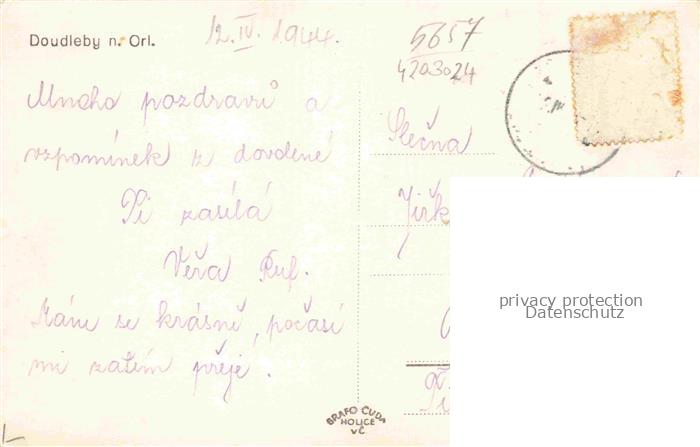 Doudleby n. Orl.
12.IV. 1944.
5657
4203024
Mnoho pozdravů a
vzpomínek z dovolené
Ti zasílá
Věra Ruf.
Mám se krásně, počasí
mi zatím přeje.
Slečna
Jirk
BRAFO ČUDA
HOLICE
v Č
privacy protection
Datenschutz